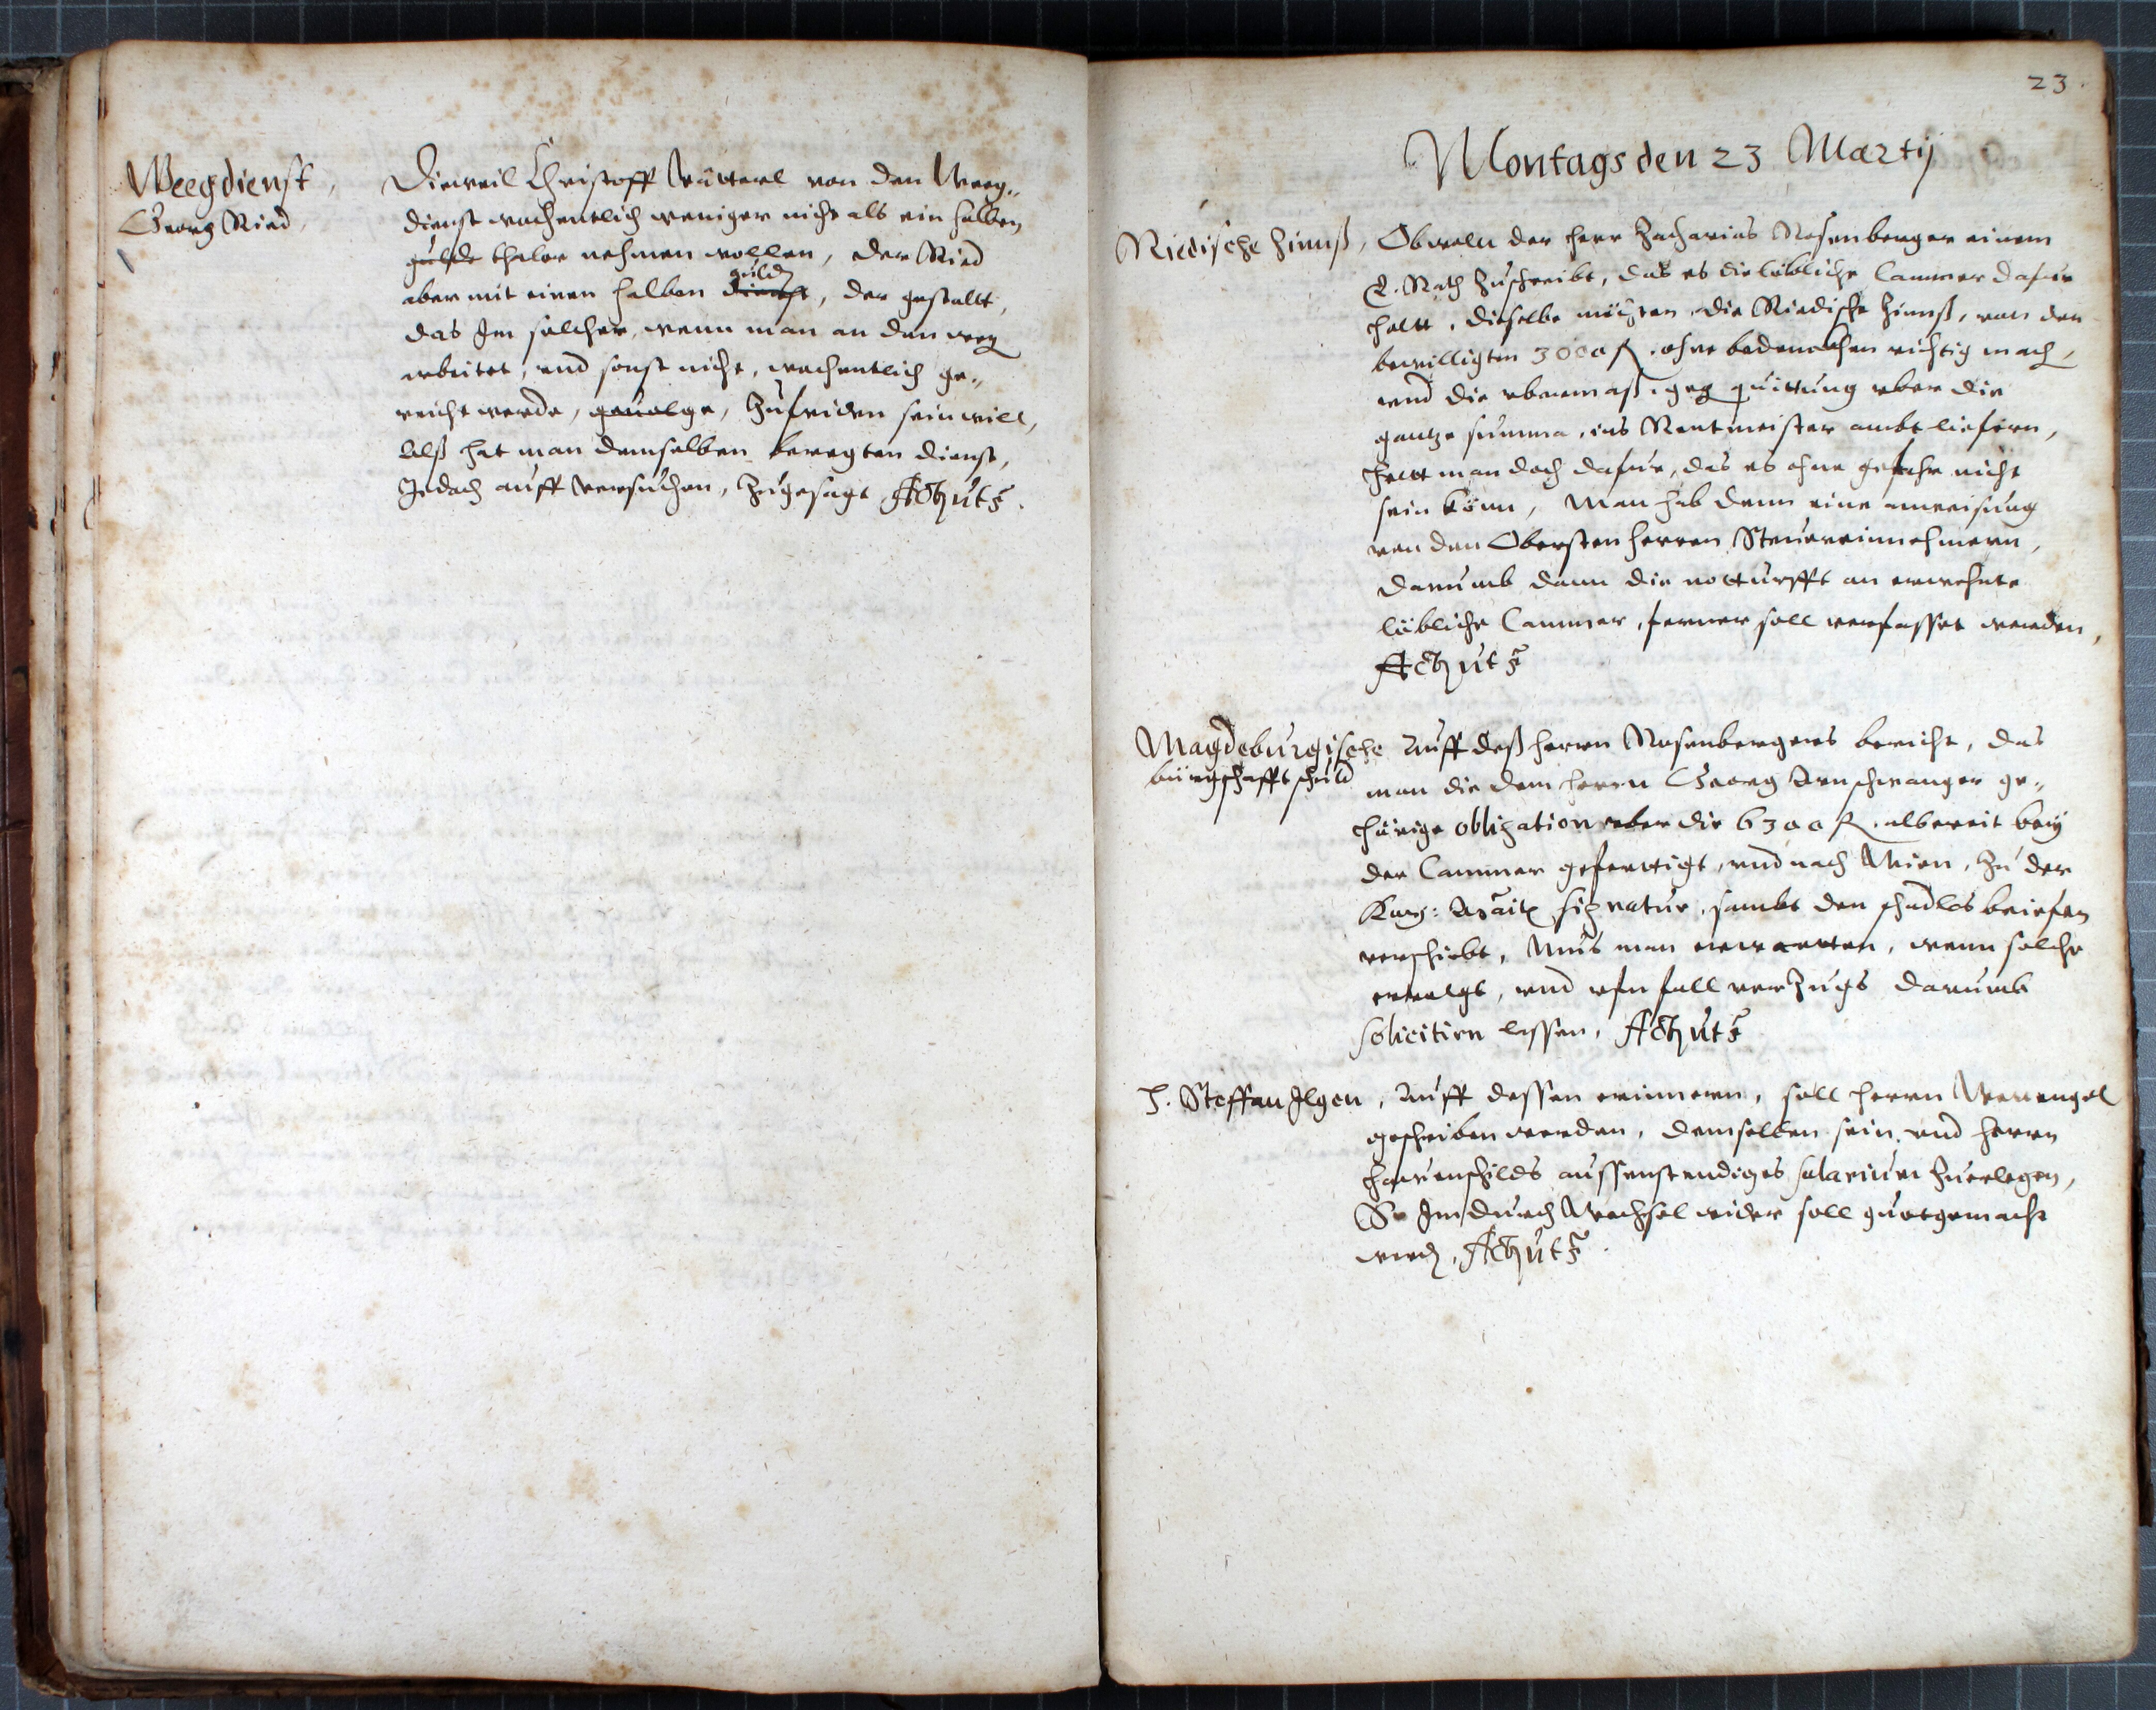 Weegdienst,
Georg Ried,
Dieweil Christoff von den Weeg-
dienst wochentlich weniger nicht als ein halben
gulde thaler nehmen wollen, der Ried
aber mit einen halben dienst guld, der gestallt,
das Im solcher, wenn man an den weg
arbeitet, und sonst nicht, wochentlich ge-
reicht werde, gevolge, Zufriden sein will,
Alß hat man demselben beregten dienst,
Jedoch auff versuchen, Zugesagt
23.
Montags den 23 Martij
Riedische Zinnß,
Obwoln der Herr Zacharias Rosenberger einem
E. Rath Zuschreibt, das es die löbliche Cammer dafur
helt, dieselbe möchten die Riedische Zinnß, von den
bewilligten 3000 fl. ohne bedencken richtig mach,
und die ebenmaßige quittung uber die
gantze summa, ins Rentmeister ambt liefern,
Helt man doch dafur, das es ohne gefahr nicht
sein könn, Man hab denn eine anweisung
von den Obersten herren Steuereinnehmern,
Darumb dann die notturfft an erwehnte
löbliche Cammer, ferner soll verfasset werden,
Magdeburgische
bürgschafft schuld
Auff deß herrn Rosenbergers bericht, das
man die dem herrn Georg Anschwanger ge-
hörige obligation uber die 6300 fl. albereit bey
der Cammer gefertigt, und nach Wien, Zu der
Kay: Mait signatur, sambt den schadlos briefen
verschickt, Mus man erwartten, wenn solche
ervolgt, und ufn fall verzugs darumb
solicitirn lassen,
H. Steffan Ilgen,
Auff dessen erinnern, soll herrn
geschriben werden, demselben sein und herrn
aussenstendiges salarium Zuerlegen,
So Im durch Wechsel wider soll guttgemacht
werd,